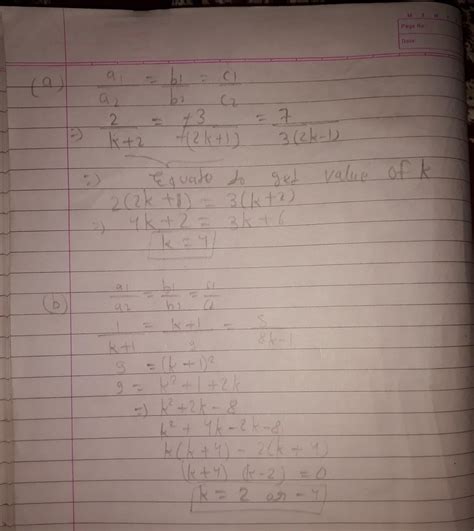 M T W
Page No.
Date
(a) a1/a2 = b1/b2 = c1/c2
⇒) 2/k+2 = +3/+(2k+1) = 7/3(2k-1)
⇒) Equate to get value of k
2(2k+1) = 3(k+2)
⇒) 4k+2 = 3k+6
k = 4
(b) a1/a2 = b1/b2 = c1/c2
1/k+1 = k+1/9 = 5/8k-1
9 = (k+1)²
9 = k²+1+2k
⇒) k²+2k-8
k²+4k-2k-8
k(k+4)-2(k+4)
(k+4) (k-2) = 0
k = 2 or -4